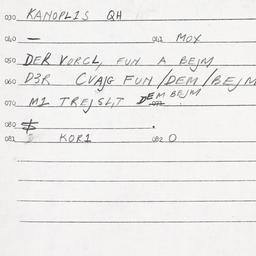 030 KANOPLIS QH
040 — 041 MOX
050 DER VORCL, FUN A BEJM
060 D3R CVAJG FUN /DEM/BEJM
070 M1 TREJSLIT DEM BEJM
080 $ .
081 KOR1 082 O